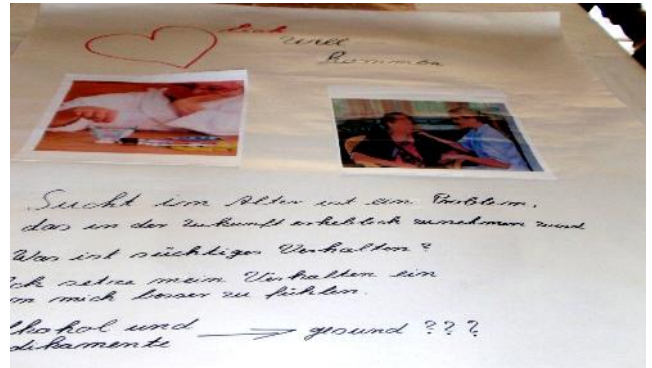 ♥lich
will
kommen
Sucht im Alter ist ein Problem,
das in der Zukunft erheblich zunehmen wird
Was ist süchtiges Verhalten?
Ich setze mein Verhalten ein
um mich besser zu fühlen.
lkohol und → gesund ???
dikamente